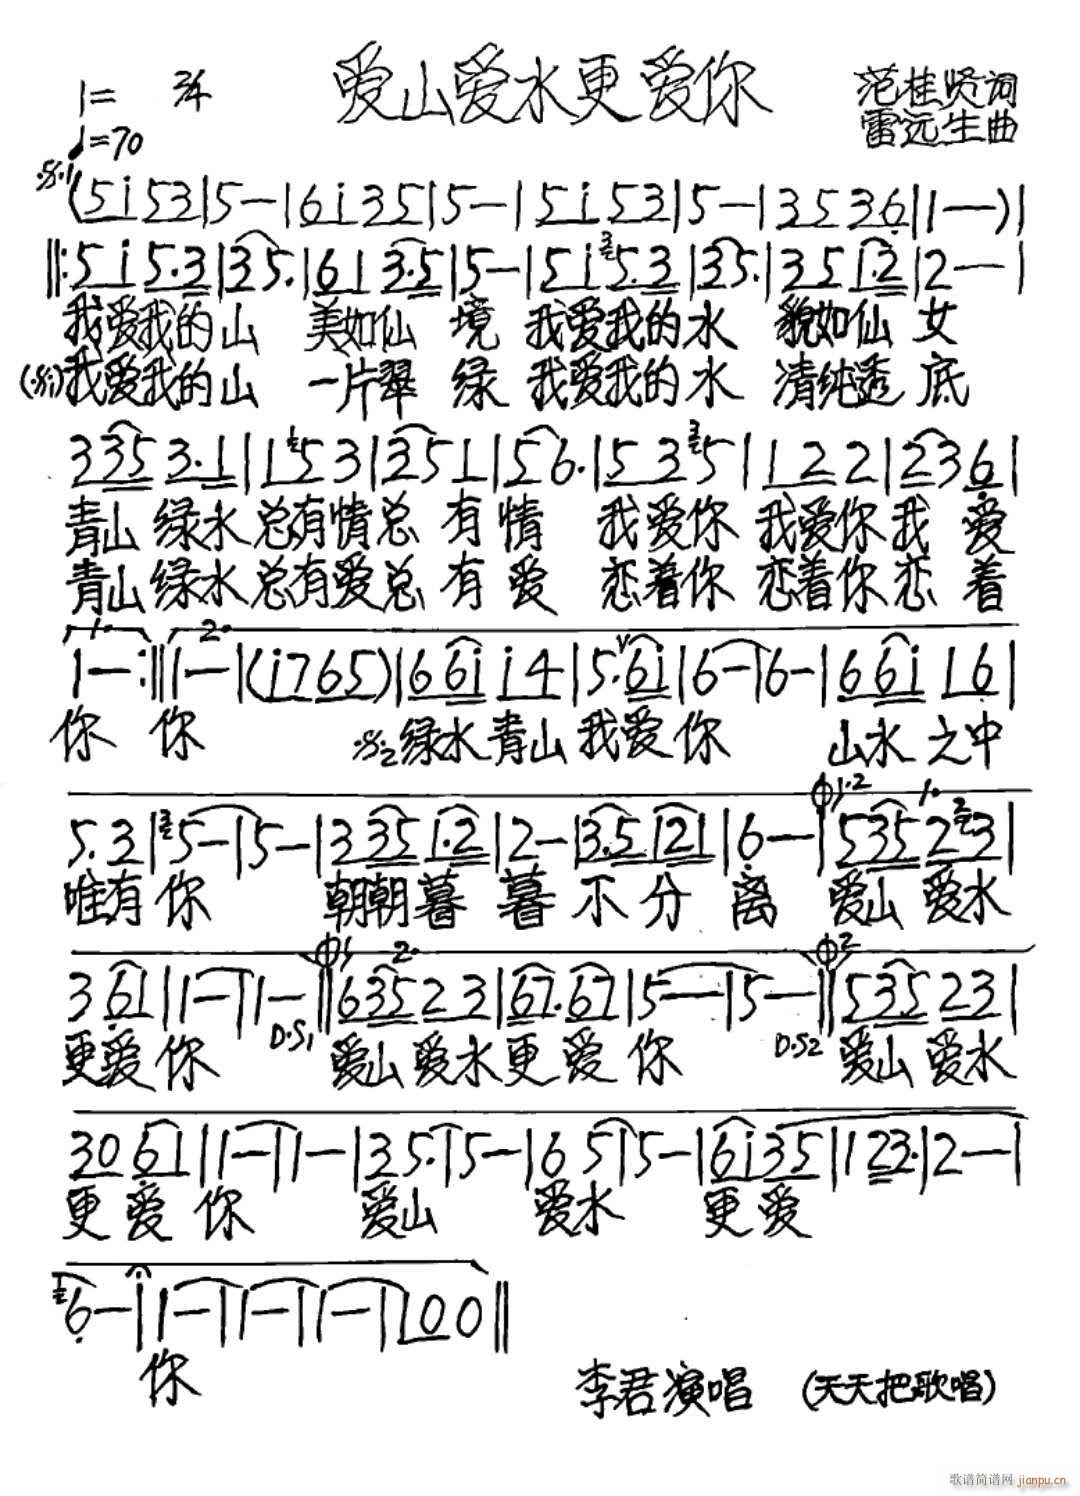 爱山爱水更爱你
1= 2/4
♩=70
范桂贤词
雷远生曲
(5 i 5 3 | 5 — | 6 i 3 5 | 5 — | 5 i 5 3 | 5 — | 3 5 3 6 | 1 — ) |
‖: 5 i 5. 3 | 3 5. | 6 1 3. 5 | 5 — | 5 i 5. 3 | 3 5. | 3 5 1. 2 | 2 — |
我爱我的山 美如仙 境 我爱我的水 貌如仙 女
我爱我的山 一片翠 绿 我爱我的水 清纯透 底
3 3 5 3. 1 | 1 5 3 | 3 5 1 | 5 6. | 5 3 5 | 1 2 2 | 2 3 6 |
青山 绿水总有情总 有情 我爱你 我爱你我 爱
青山绿水总有爱总 有爱 恋着你 恋着你恋 着
1 — :‖ 1 — | (i 7 6 5) | 6 6 i i 4 | 5. 6 i | 6 — | 6 — | 6 6 i 1 6 |
你 你 绿水青山我爱你 山水之中
5. 3 | 5 — | 5 — | 3 3 5 1. 2 | 2 — | 3. 5 1 2 1 | 6 — | 5 3 5 2 3 |
唯有你 朝朝暮 暮不分离 爱山爱水
3 6 1 | 1 — | 1 — ‖ 6 3 5 2 3 | 6 7. 6 7 | 5 — | 5 — ‖ 5 3 5 2 3 |
D.S1
D.S2
更爱你 爱山爱水更爱你 爱山爱水
3 0 6 1 | 1 — | 1 — | 3 5. | 5 — | 6 5 | 5 — | 6 i 3 5 | 1 2 3. | 2 — |
更爱你 爱山 爱水 更爱
6 — | 1 — | 1 — | 1 — | 1 0 0 ‖
你
李君演唱 (天天把歌唱)
歌谱简谱网 jianpu.cn